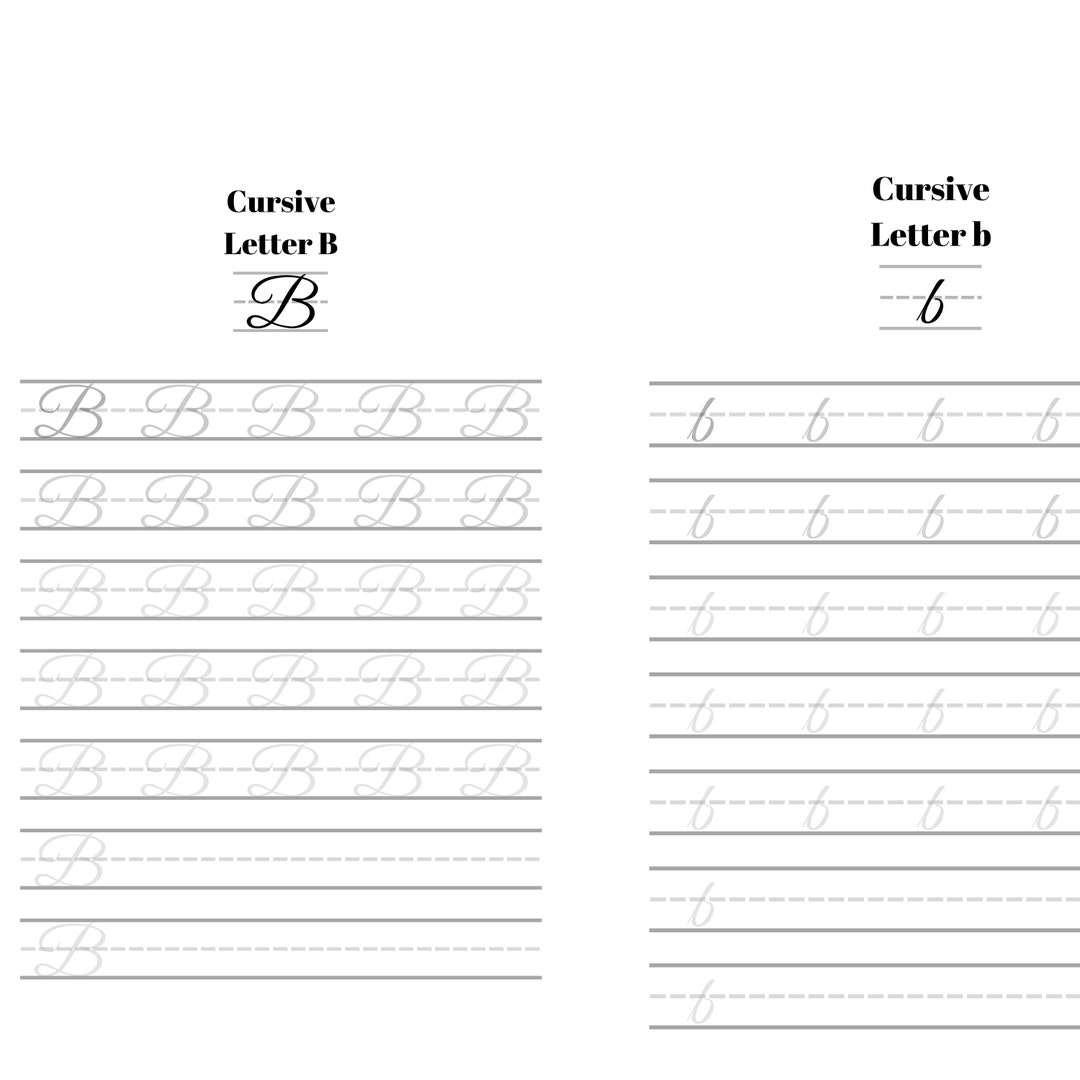 Cursive
Letter B
B
B B B B B
B B B B B
B B B B B
B B B B B
B B B B B
B
B
Cursive
Letter b
b
b b b b
b b b b
b b b b
b b b b
b b b b
b
b